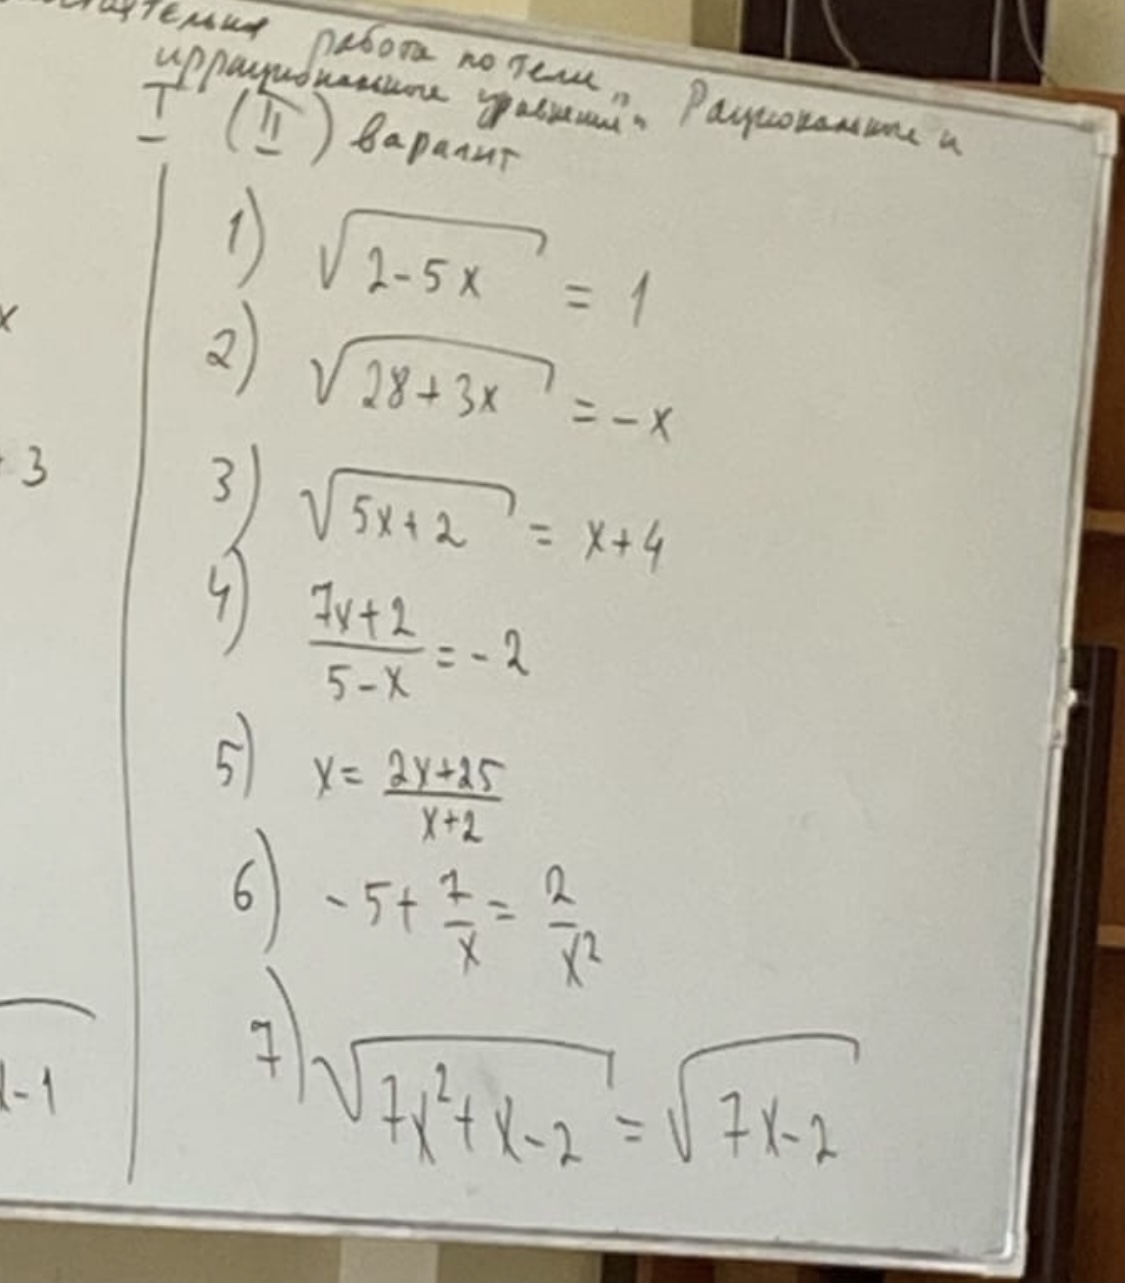 работа по теме „Рациональные и
иррациональные уравнения"
I (II) вариант
1) √(2-5x) = 1
2) √(28+3x) = -x
3) √(5x+2) = x+4
4) (7x+2)/(5-x) = -2
5) x = (2x+25)/(x+2)
6) -5+7/x = 2/x²
7) √(7x²+x-2) = √(7x-2)
x
3
-1